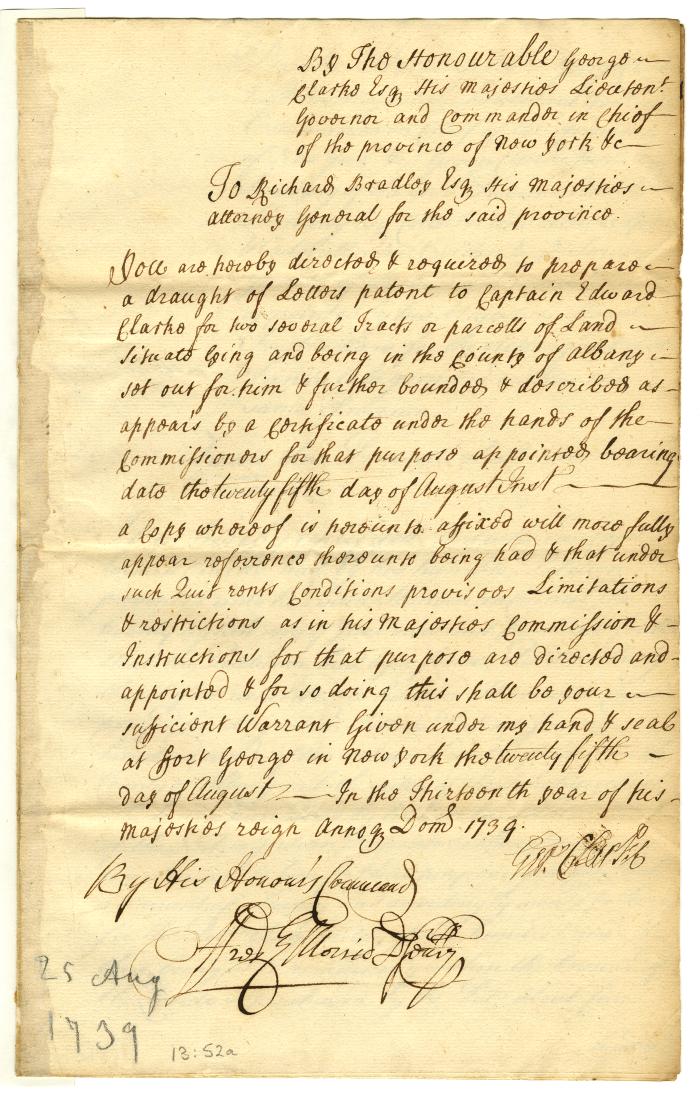 By The Honourable George
Clarke Esqr His Majesties Lieutent
Governor and Commander in Chief
of the province of New York &c
To Richard Bradley Esqr His Majesties
attorney General for the said province.
You are hereby directed & required to prepare
a draught of Letters patent to Captain Edward
Clarke for two several Tracts or parcells of Land
situate lying and being in the County of Albany
set out for him & further bounded & described as
appears by a Certificate under the hands of the
Commissioners for that purpose appointed bearing
date the twenty fifth day of August Inst
a Copy whereof is hereunto affixed will more fully
appear referrence thereunto being had & that under
such Quit rents Conditions provisoes Limitations
& restrictions as in his Majesties Commission &
Instructions for that purpose are directed and
appointed & for so doing this shall be your
sufficient Warrant Given under my hand & seal
at ffort George in New York the twenty fifth
day of August In the Thirteenth year of his
Majesties reign Annoq Dom 1739.
Geo. Clarke
By His Honour's Command
Fred Morris D Secry
25 Aug
1739
13:52a